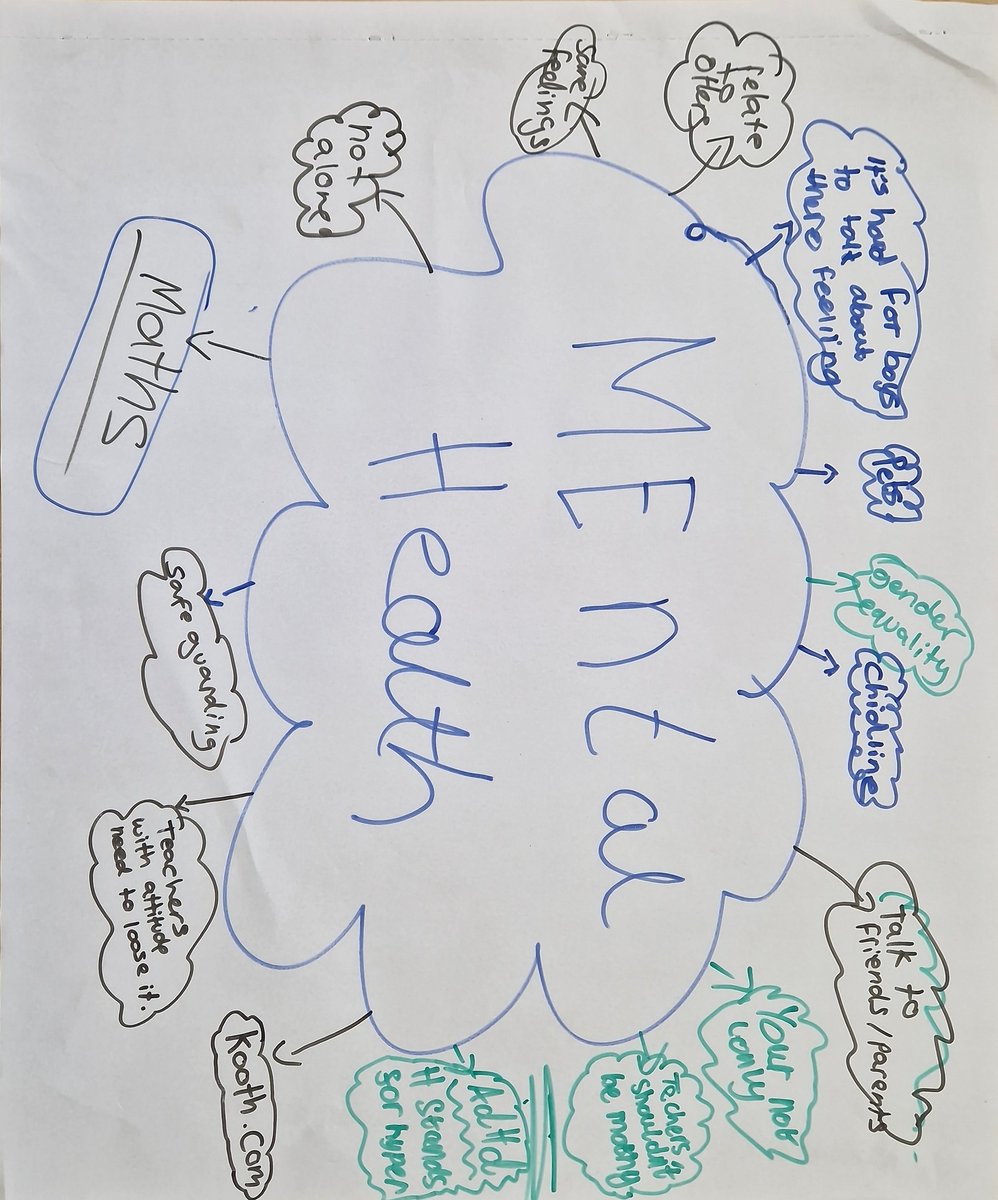 MEntal
Health
relate
to
others
same
feelings
not
alone
It's hard for boys
to talk about
there feeliing
Pets
gender
equality
chidline
Talk to
friends/parents
Your not
lonly
Teachers
shouldn't
be
AdHd
H Strands
for hyper
Kooth.com
Teachers
with attitude
need to loose it.
safe guarding
Maths